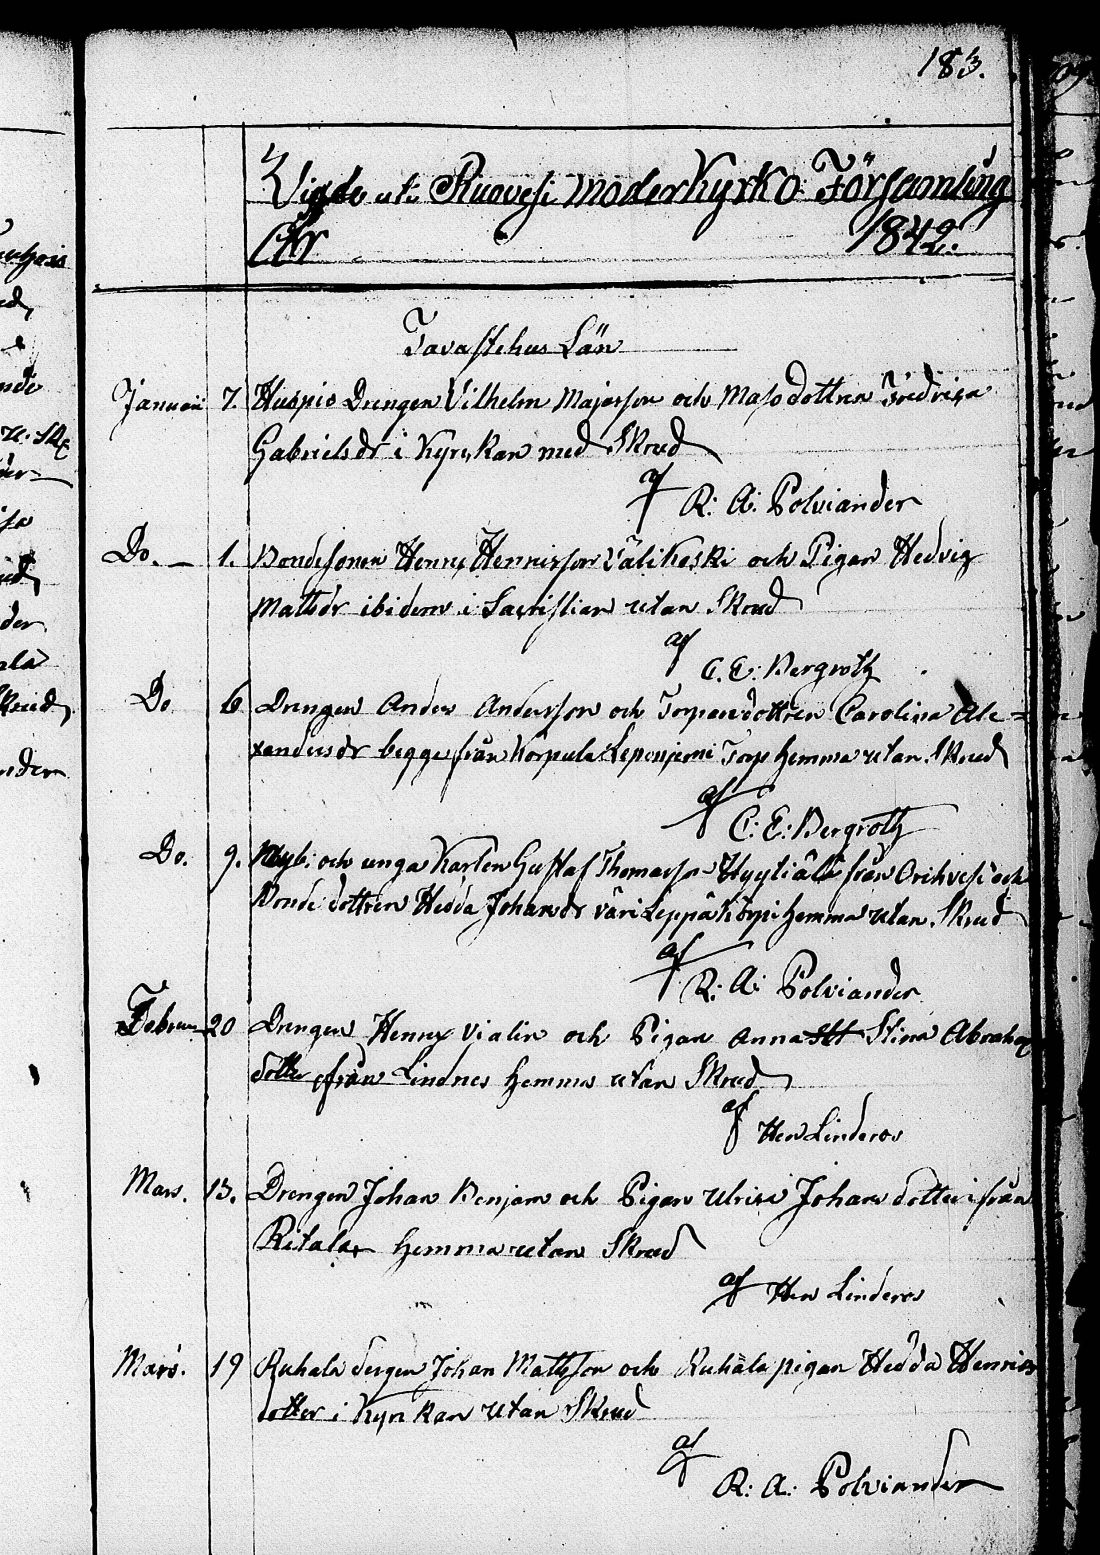 183.
Vigde uti Ruovesi Moderkyrko Församling
År 1842.
Tavastehus Län
Januarii 7. Huspio Drengen Vilhelm Majorson och Maso dottren Fredrica
Gabrielsdr i Kyrkan med Skrud
af R: A: Polviander
Do. 1. Bondesonen Henric Henricsson Välikoski och Pigan Hedvig
Mattsdr ibidem i Sacristian utan Skrud
af C. E: Bergroth
Do 6 Drengen Anders Andersson och Torparedottren Carolina Ale-
xandersdr begge från Korpula Torp hemma utan Skrud
af C: E: Bergroth
Do. 9. och unga Karlen Gustaf Thomasson Hyytiälä från Orihvesi och
Bonde dottren Hedda Johansdr hemma utan Skrud
af R: A: Polviander
Februari 20 Drengen Henric Vialin och Pigan Anna Stina Abraha
dotter från Lindnes hemma utan Skrud
af Hen Linderos
Mars. 13. Drengen Johan Benjam och Pigan Ulrica Johans dotter ifrån
Ritala hemma utan Skrud
af Hen Linderos
Mars. 19 Ruhala drengen Johan Mattsson och Ruhala pigan Hedda Henrics
dotter i Kyrkan utan Skrud
af R: A: Polviander